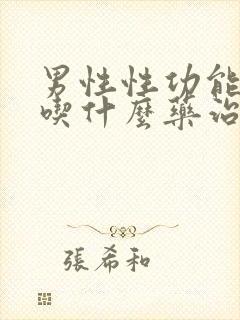 男性性功能
喫什麼藥治
張希和